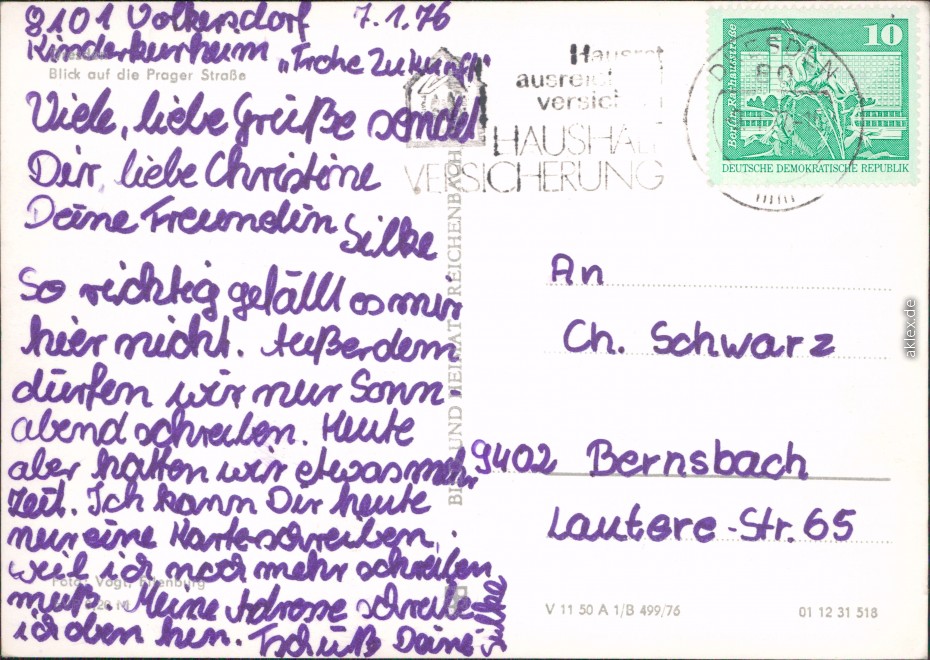 8101 Volkersdorf 7.1.76
Kinderkurheim „Frohe Zukunft"
Blick auf die Prager Straße
Viele, liebe Grüße sendet
Dir liebe Christine
Deine Freundin
Silke
So richtig gefällt es mir
hier nicht. Außerdem
dürfen wir nur Sonn-
abend schreiben. Heute
aber hatten wir etwas mehr
Zeit. Ich kann Dir heute
nur eine Karte schreiben,
weil ich noch mehr schreiben
muß. Meine Adresse schreibe
ich oben hin. Tschüß Deine Silke
Foto: Vogt, Eilenburg
BILD UND HEIMAT REICHENBACH
Hausrat
ausreichend
versichert
HAUSHALT
VERSICHERUNG
DRESDEN
80
10
Berlin-Rathausstraße
DEUTSCHE DEMOKRATISCHE REPUBLIK
An
Ch. Schwarz
9402 Bernsbach
Lautere-Str. 65
V 11 50 A 1/B 499/76 01 12 31 518
aklex.de